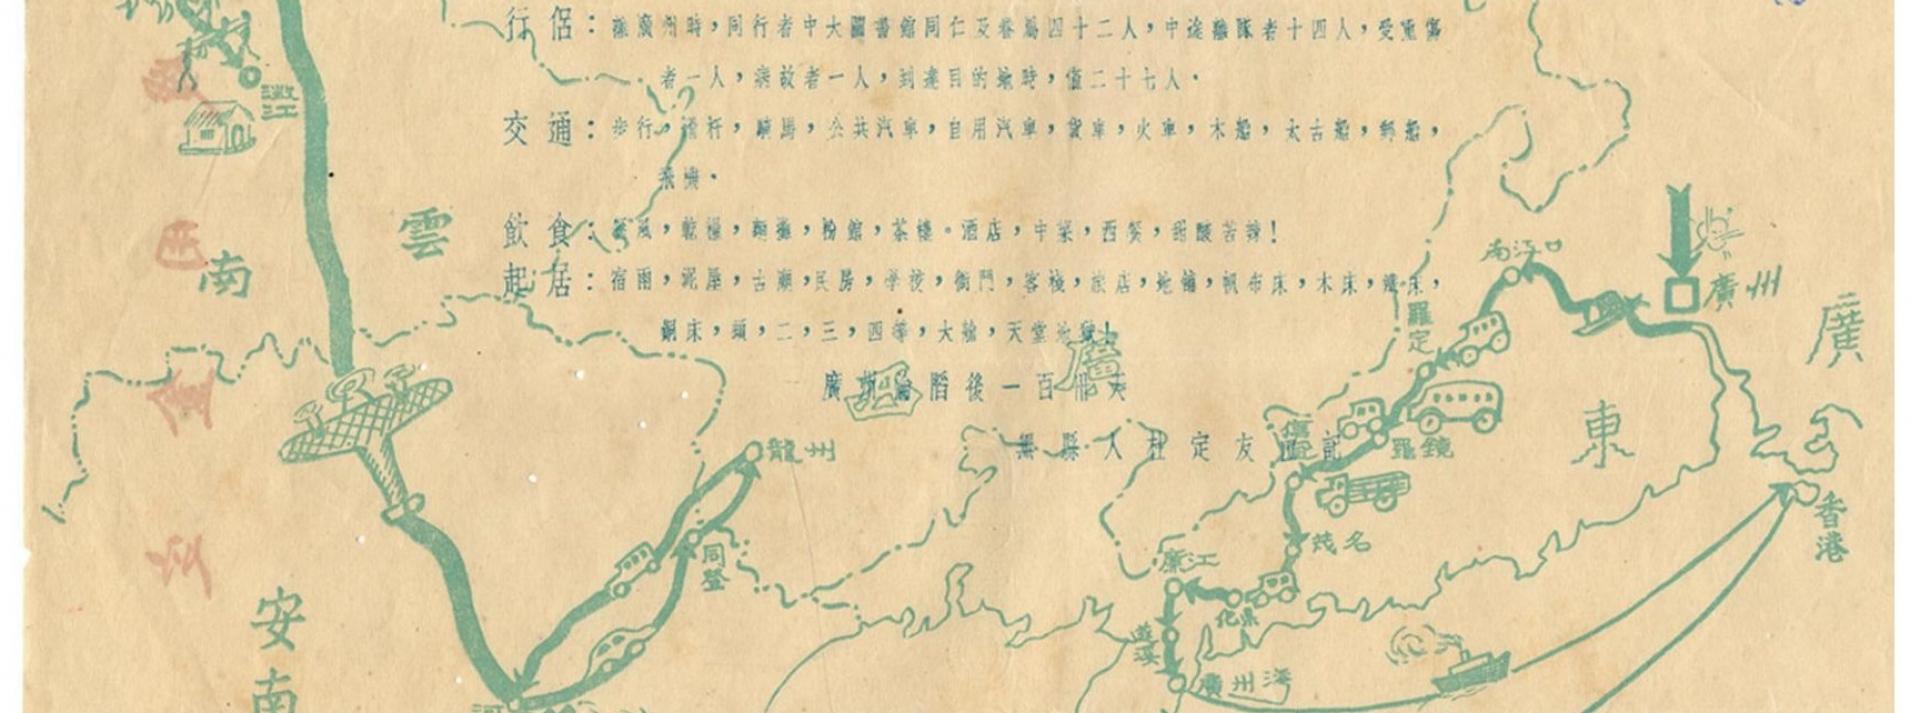 行侶：離廣州時，同行者中大圖書館同仁及眷屬四十二人，中途離隊者十四人，受重傷
者一人，病故者一人，到達目的地時，僅二十七人．
交通：步行，滑杆，騎馬，公共汽車，自用汽車，貨車，火車，木船，太古船，郵船，
飛機．
飲食：風，乾糧，粉館，茶樓。酒店，中菜，西餐，甜酸苦辣！
起居：宿雨，泥屋，古廟，民房，學校，衙門，客棧，旅店，地鋪，帆布床，木床，鐵床，
銅床，頭，二，三，四等，大艙，天堂地獄！
廣州淪陷後一百卌天
縣人杜定友 記
澂江
雲
南
安
南
龍州
同登
河
廣
西
廣
東
廣州
南江口
羅定
羅鏡
茂名
化縣
廉江
遂溪
廣州灣
香港